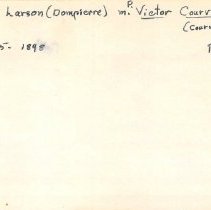 Larson (Dompierre) m. P. Victor Courv
(Cour
5- 1898